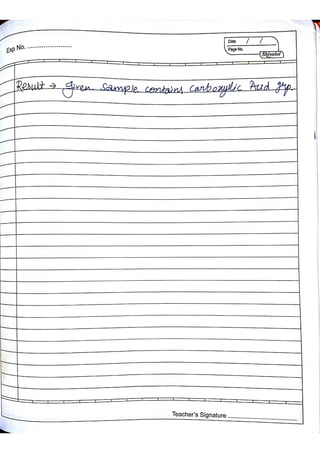 Exp No. ........................
Date / /
Page No.
Result → Given Sample contains Carboxylic Acid grp.
Teacher's Signature